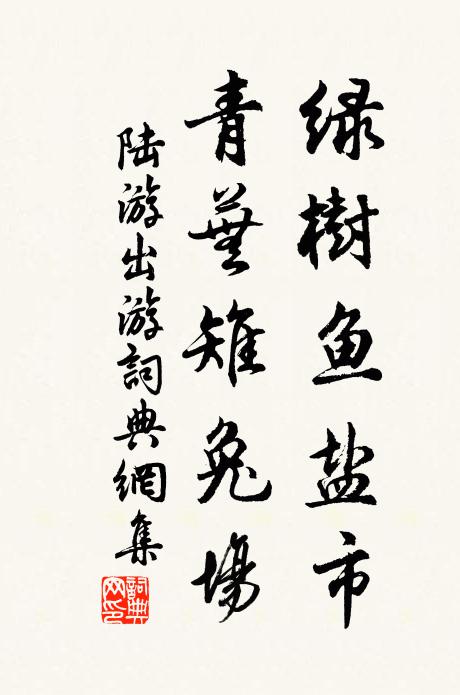 绿樹鱼盐市
青蕪雉兔場
陆游出游詞典網集
詞典网印